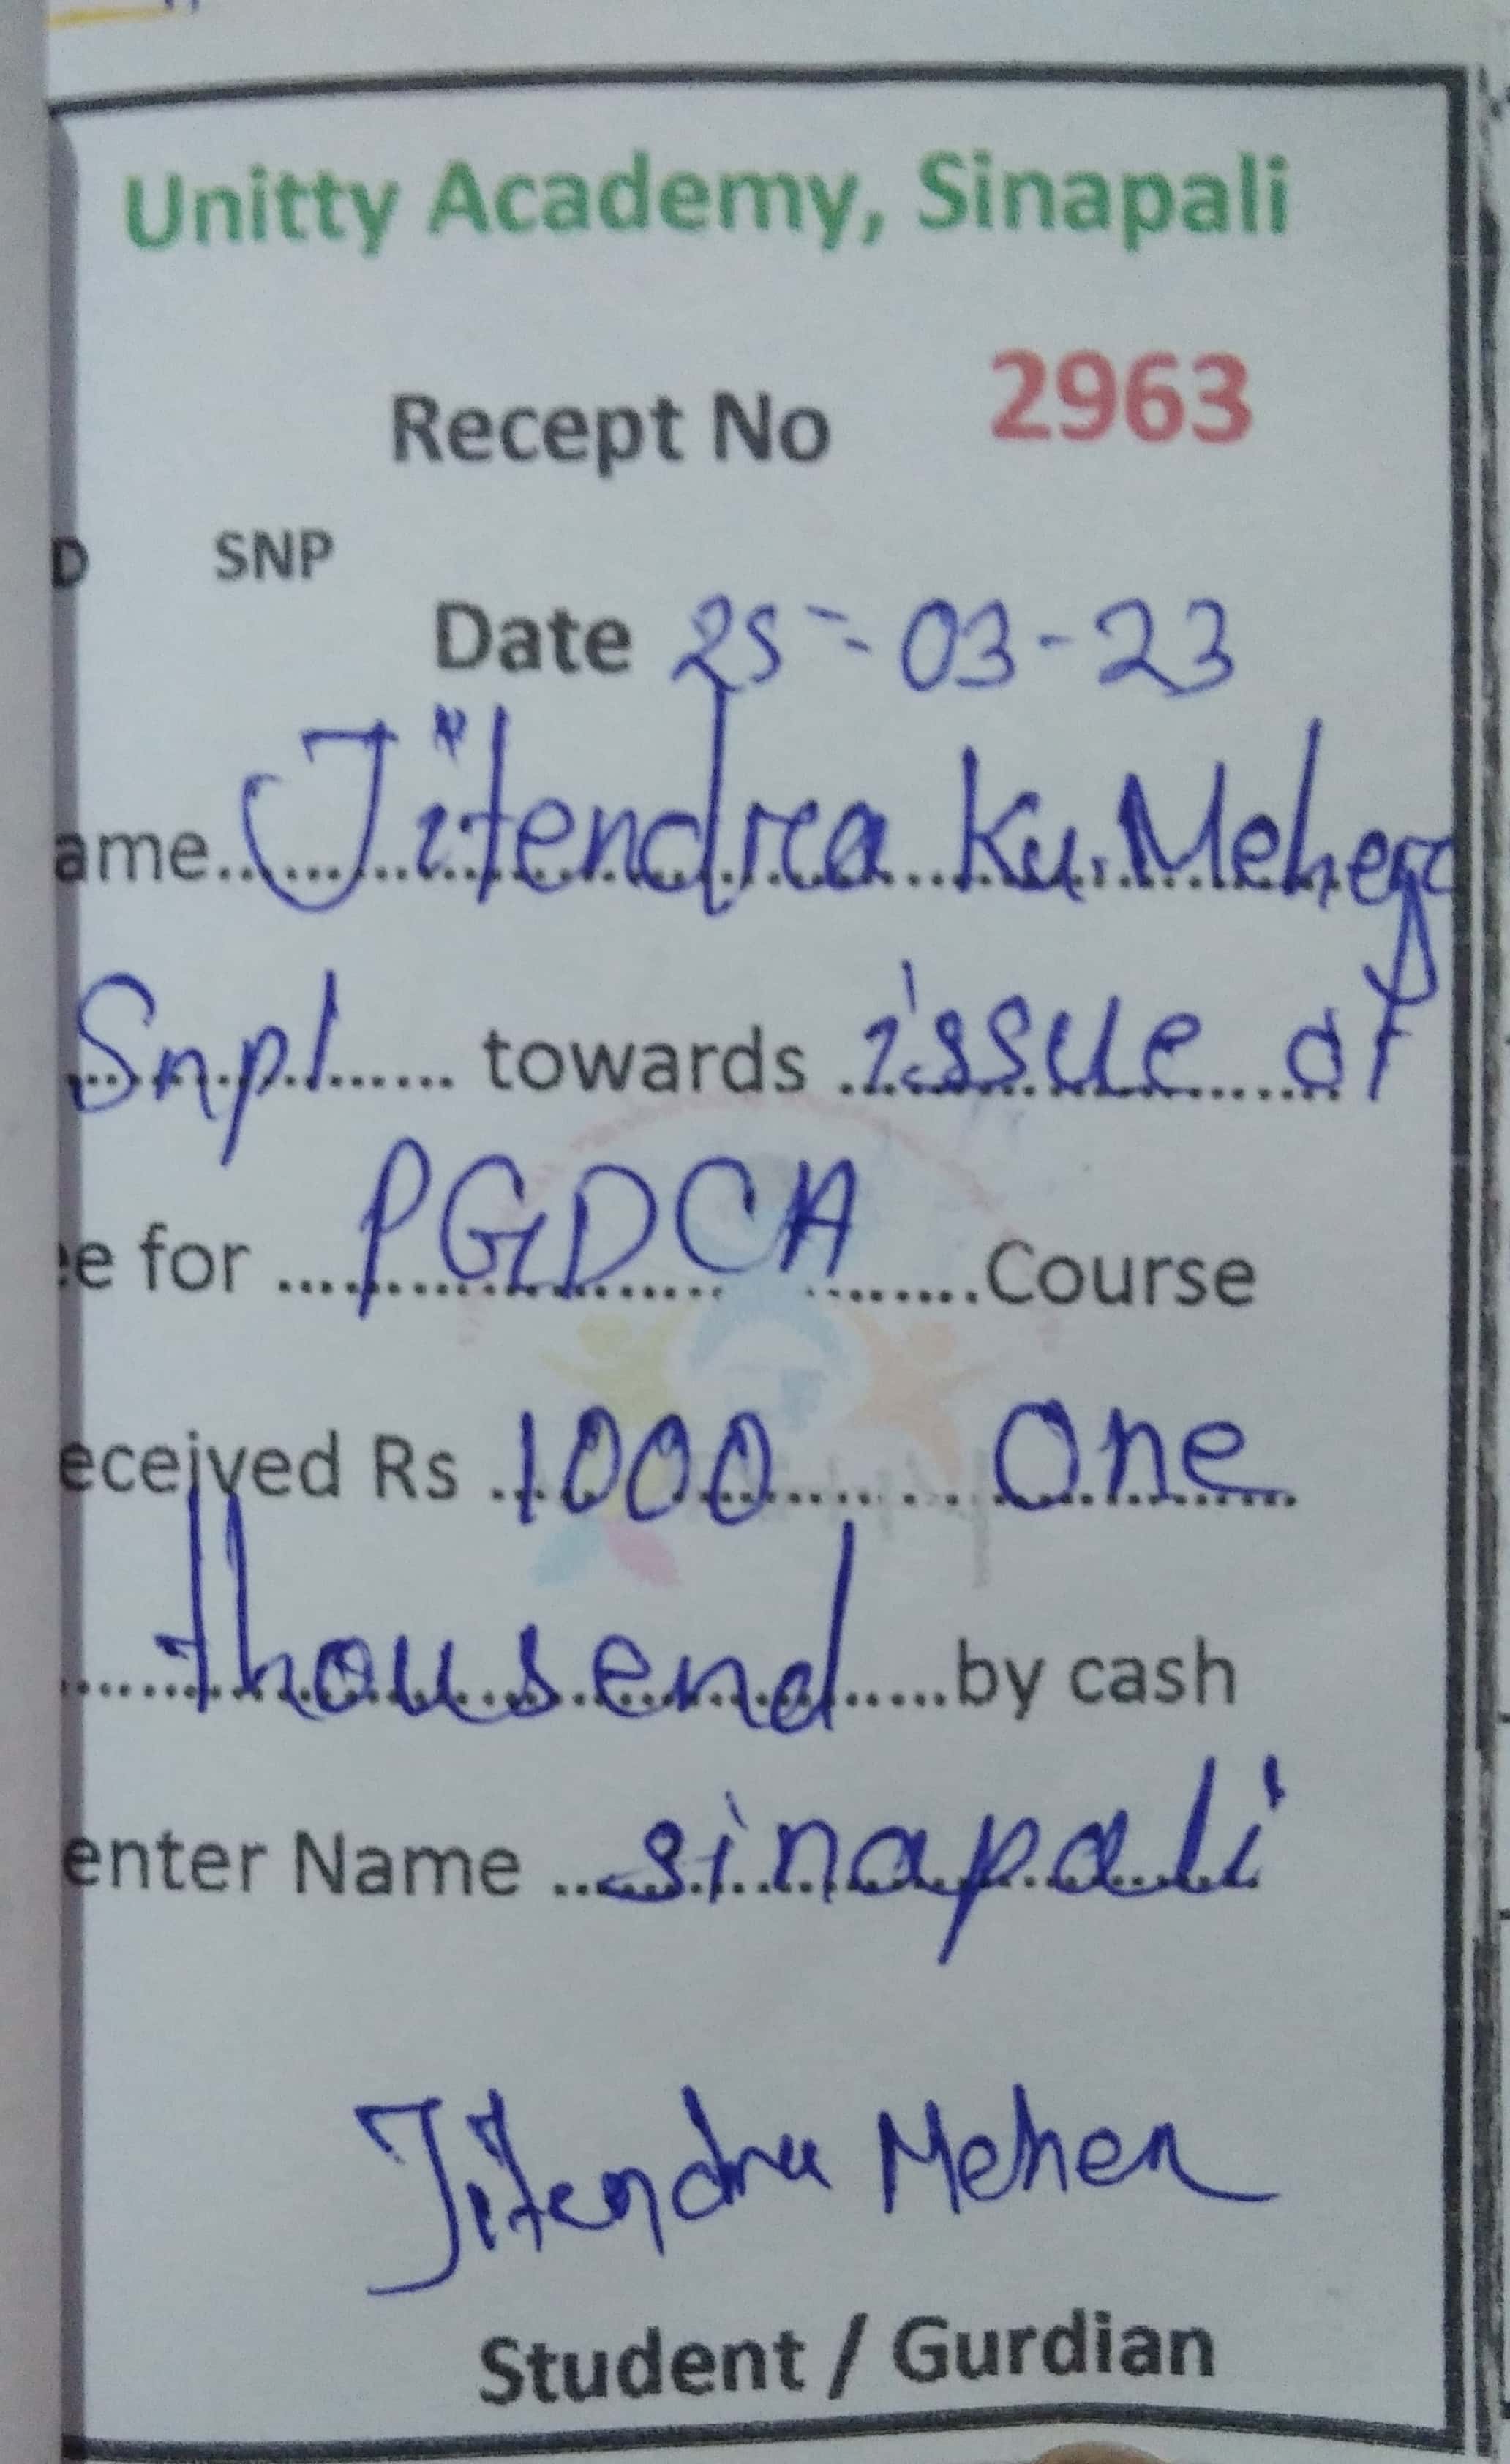 Unitty Academy, Sinapali
Recept No 2963
D SNP
Date 25-03-23
ame Jitendra Ku. Meher
Snpl towards issue of
e for PGDCA Course
eceived Rs 1000 One
thousend by cash
enter Name sinapali
Jitendra Meher
Student / Gurdian